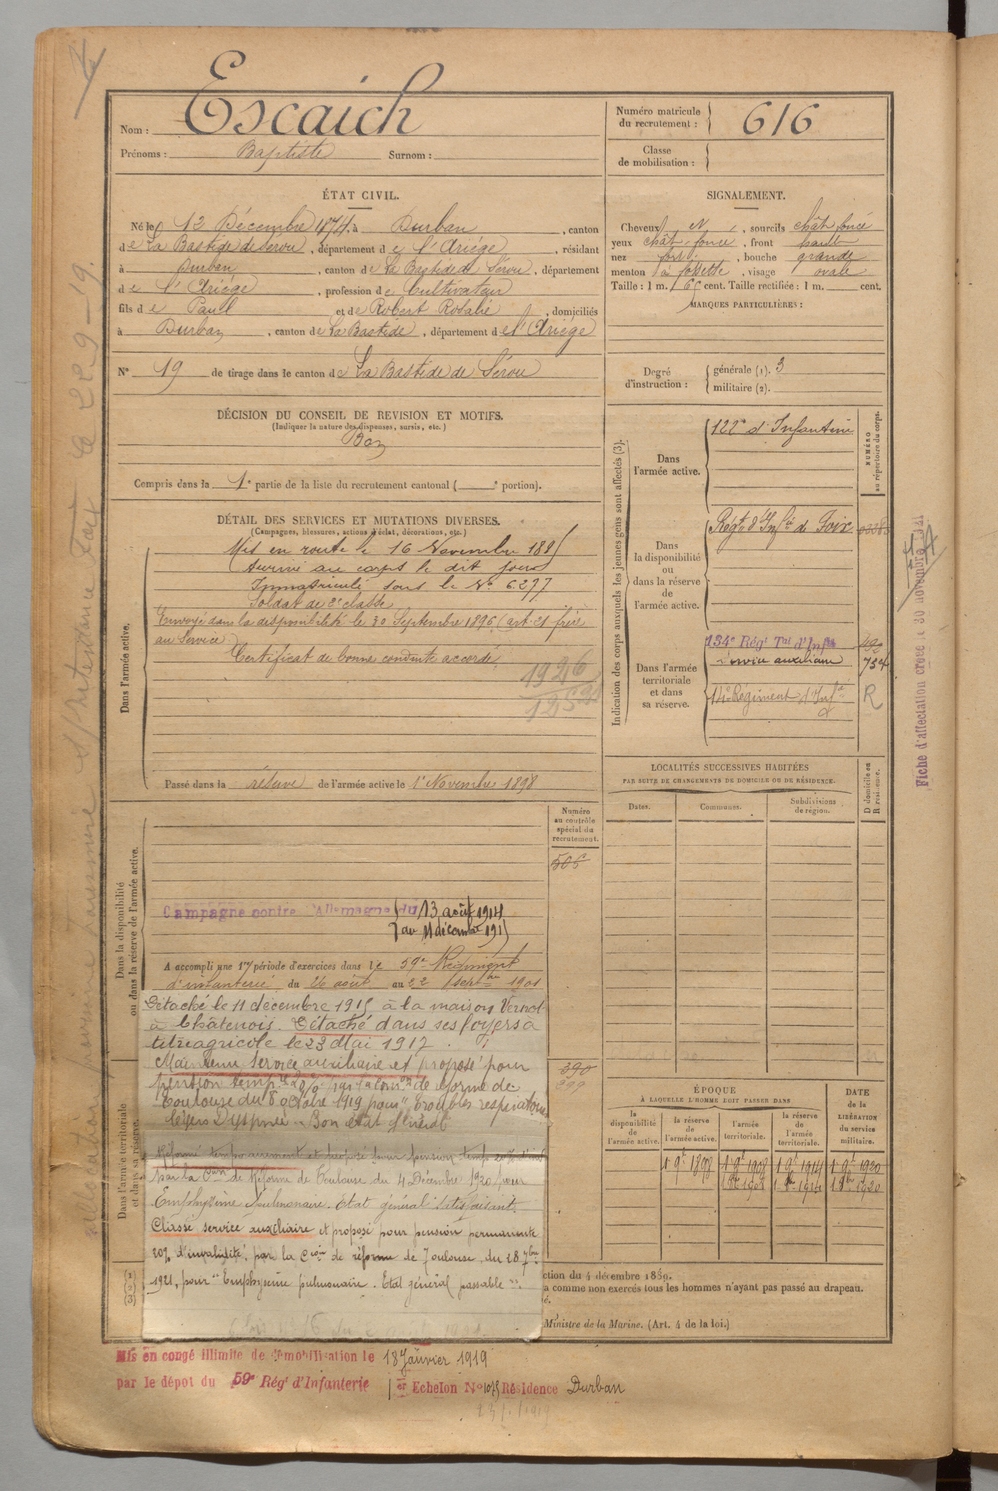 Nom : Escaich
Prénoms : Baptiste Surnom :
Numéro matricule du recrutement : 616
Classe de mobilisation :
ÉTAT CIVIL.
Né le 12 Décembre 1874, à Durban, canton
de La Bastide de Sérou, département de l'Ariége, résidant
à Durban, canton de La Bastide de Sérou, département
de l'Ariége, profession de Cultivateur
fils de Paul et de Robert Rosalie, domiciliés
à Durban, canton de La Bastide, département de l'Ariége
N° 19 de tirage dans le canton de La Bastide de Sérou
SIGNALEMENT.
Cheveux N, sourcils chât foncé
yeux chât foncé, front haut
nez fort, bouche grande
menton à fossette, visage ovale
Taille : 1 m. 66 cent. Taille rectifiée : 1 m. cent.
MARQUES PARTICULIÈRES :
Degré d'instruction : générale (1). 3
militaire (2).
DÉCISION DU CONSEIL DE REVISION ET MOTIFS.
(Indiquer la nature des dispenses, sursis, etc.)
Bon
Compris dans la 1e partie de la liste du recrutement cantonal ( e portion).
DÉTAIL DES SERVICES ET MUTATIONS DIVERSES.
(Campagnes, blessures, actions d'éclat, décorations, etc.)
Dans l'armée active.
Mis en route le 16 Novembre 1895
Arrivé au corps le dit jour
Immatriculé sous le N° 6277
Soldat de 2e classe
Envoyé dans la disponibilité le 30 Septembre 1896 (art 21 frère
au Service)
Certificat de bonne conduite accordé.
1926
Passé dans la réserve de l'armée active le 1er Novembre 1898
Indication des corps auxquels les jeunes gens sont affectés (3).
NUMÉRO au répertoire du corps.
Dans l'armée active.
122e d'Infanterie
Dans la disponibilité ou dans la réserve de l'armée active.
Régt d'Infie de Foix
Dans l'armée territoriale et dans sa réserve.
134e Régt Tal d'Infie
Service auxiliaire
734
14e Régiment d'Infie
R
Fiche d'affectation créée le 30 novembre 1921
LOCALITÉS SUCCESSIVES HABITÉES
PAR SUITE DE CHANGEMENTS DE DOMICILE OU DE RÉSIDENCE.
Dates. Communes. Subdivisions de région.
D domicile ou R résidence.
Dans la disponibilité ou dans la réserve de l'armée active.
Numéro au contrôle spécial du recrutement.
505
Campagne contre l'Allemagne du 13 août 1914
au 11 décembre 1915
A accompli une 1re période d'exercices dans le 59e Régiment
d'infanterie du 26 août au 22 Septbre 1901
Détaché le 11 décembre 1915 à la maison Vernot
à Châtenois. Détaché dans ses foyers à
titre agricole le 23 Mai 1917.
Maintenu service auxiliaire et proposé pour
pension temp.re 20% par la Com.on de réforme de
Toulouse du 8 octobre 1919 pour "troubles respiratoires
légers Dyspnée". Bon état général
Réformé temporairement et proposé pour pension temp. 20% d'inv.
par la Cion de Réforme de Toulouse du 4 Décembre 1920, pour
Emphysème pulmonaire. Etat général satisfaisant.
Classé service auxiliaire et proposé pour pension permanente
20% d'invalidité, par la Cion de réforme de Toulouse, du 28 7bre
1921, pour "Emphysème pulmonaire. Etat général passable".
Dans l'armée territoriale et dans sa réserve.
390
399
ÉPOQUE
À LAQUELLE L'HOMME DOIT PASSER DANS
la disponibilité de l'armée active. la réserve de l'armée active. l'armée territoriale. la réserve de l'armée territoriale.
DATE de la LIBÉRATION du service militaire.
1 9bre 1898 1 9bre 1908 1 9bre 1914 1 9bre 1920
1 8bre 1908 1 8bre 1914 1 8bre 1920
(1)
(2)
(3)
ction du 4 décembre 1889.
a comme non exercés tous les hommes n'ayant pas passé au drapeau.
é.
Ministre de la Marine. (Art. 4 de la loi.)
Mis en congé illimité de démobilisation le 18 Janvier 1919
par le dépot du 59e Régt d'Infanterie 1er Echelon No 1075 Résidence Durban